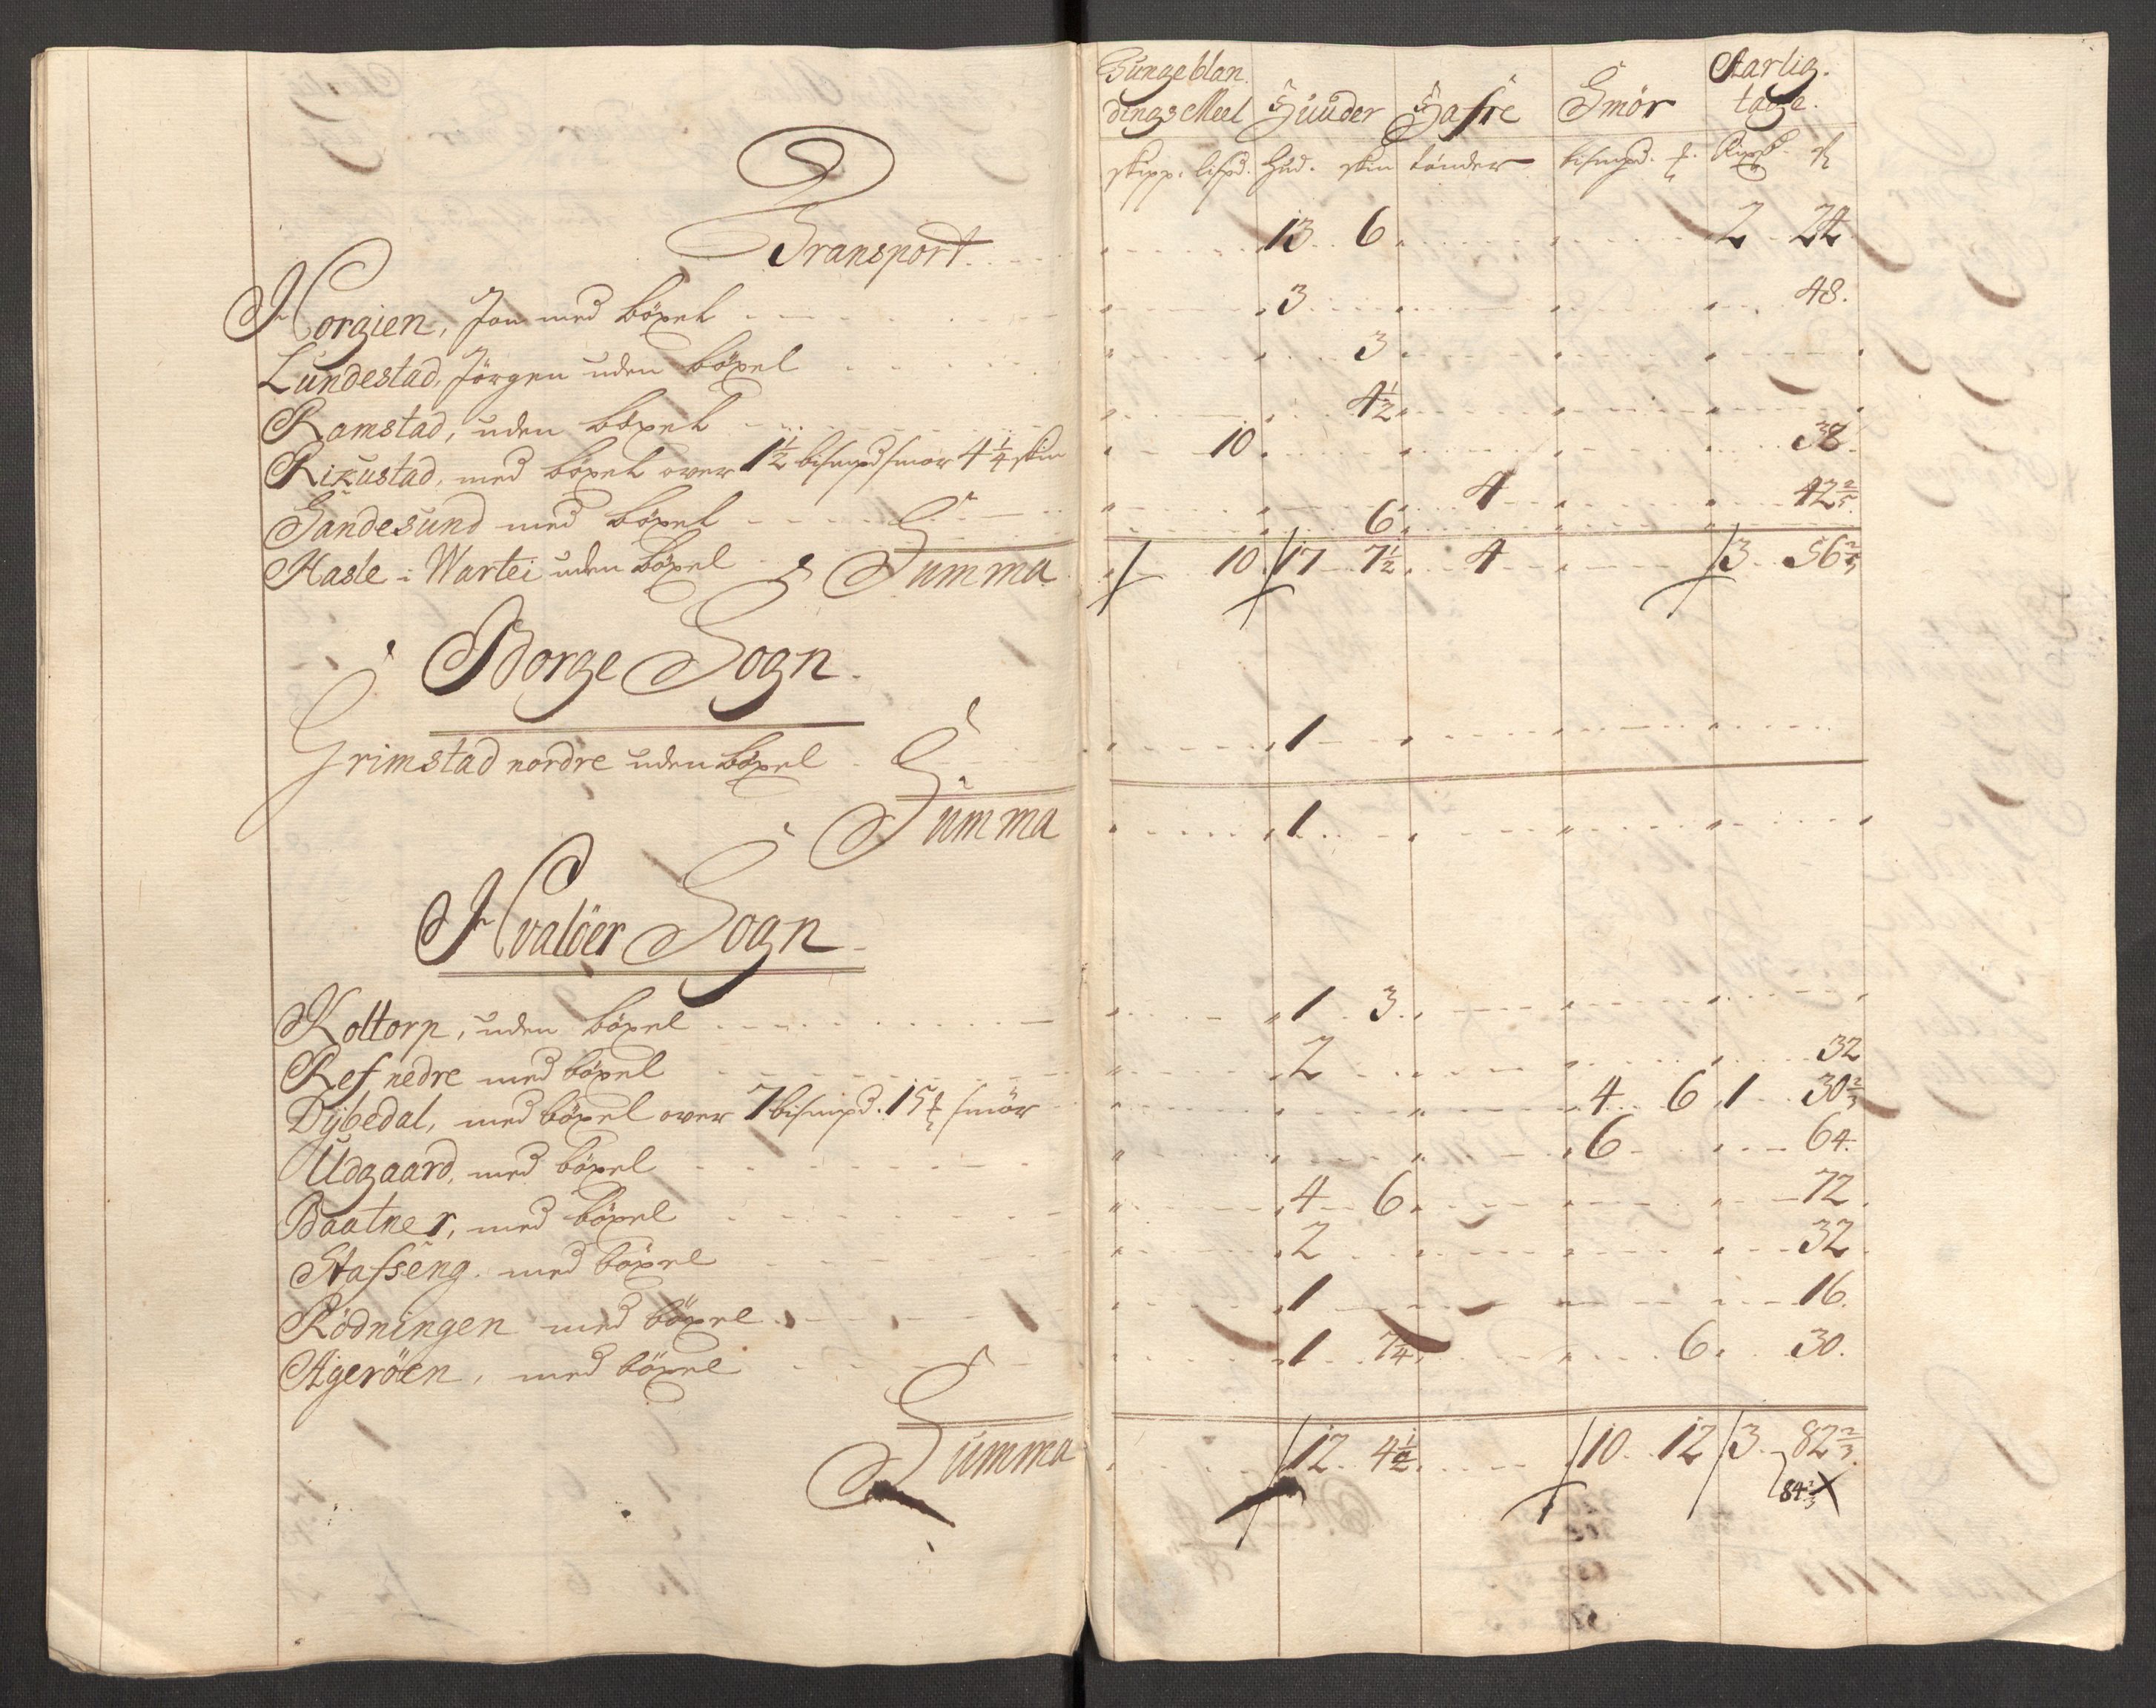 Tungeblan. Aarlig.
dings Meel Huuder Hafre Smör tage.
skipp. lispd. Hud. skin tönder bismpd. Rixd. ß
Transport 13 6 2 24
Horgien, Jon med böxel 3 48.
Lundestad, Jörgen uden böxel 3
Ramstad, uden böxel 4½
Rizustad, med böxel over 1½ bismpd smör 4¼ skin 10 38.
Sandesund med böxel 4 42⅖
Hasle i Wartei uden böxel 6
Summa 10 17 7½ 4 3 56⅖
Borge Sogn.
Grimstad nordre uden böxel 1
Summa 1
Hvalöer Sogn
Koltorp, uden böxel 1 3
Ref nedre med böxel 2 32
Dybedal, med böxel over 7 bismpd. 15 smör 4 6 1 30⅔
Udgaard, med böxel 6 64.
Baatne r, med böxel 4 6 72
Stafseng. med böxel 2 32
Rödningen med böxel 1 16.
Ageröen, med böxel 1 7¼ 6 30.
Summa 12 4½ 10 12 3 82⅔
84⅔